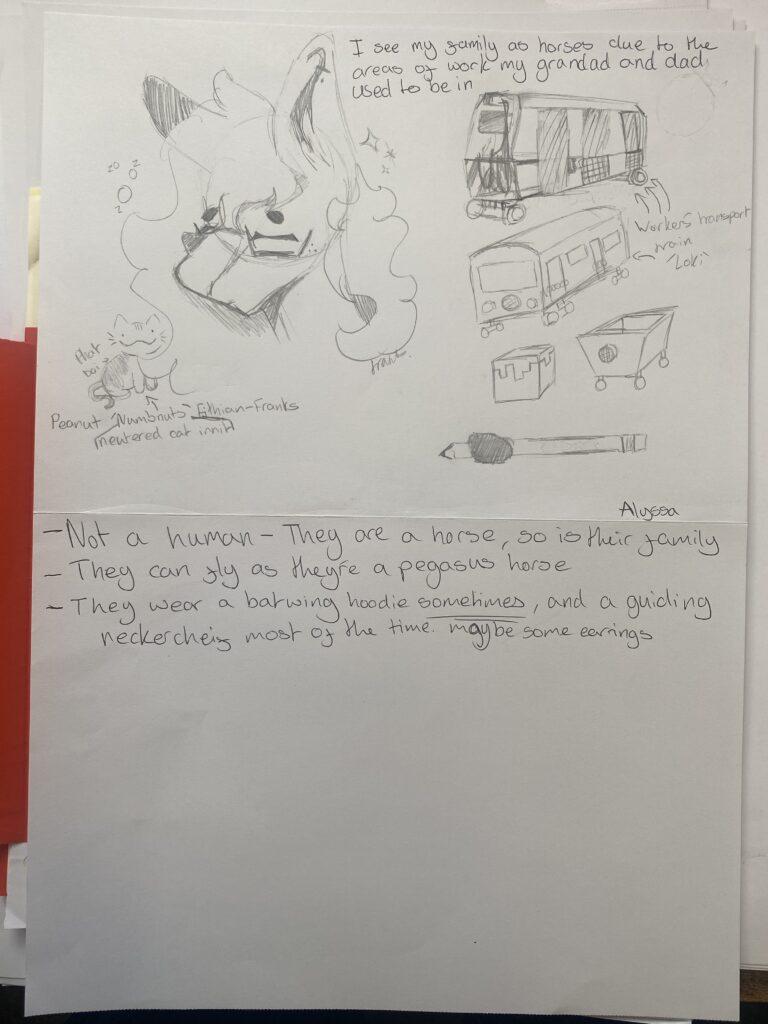 I see my family as horses due to the
areas of work my grandad and dad
used to be in
zo
z
Workers transport
train
'Loki'
that
boi
Peanut "Numbnuts" Fithian-Franks
neutered cat innit
Alyssa
- Not a human - They are a horse, so is their family
- They can fly as they're a pegasus horse
- They wear a batwing hoodie sometimes, and a guiding
neckercheif most of the time. maybe some earrings